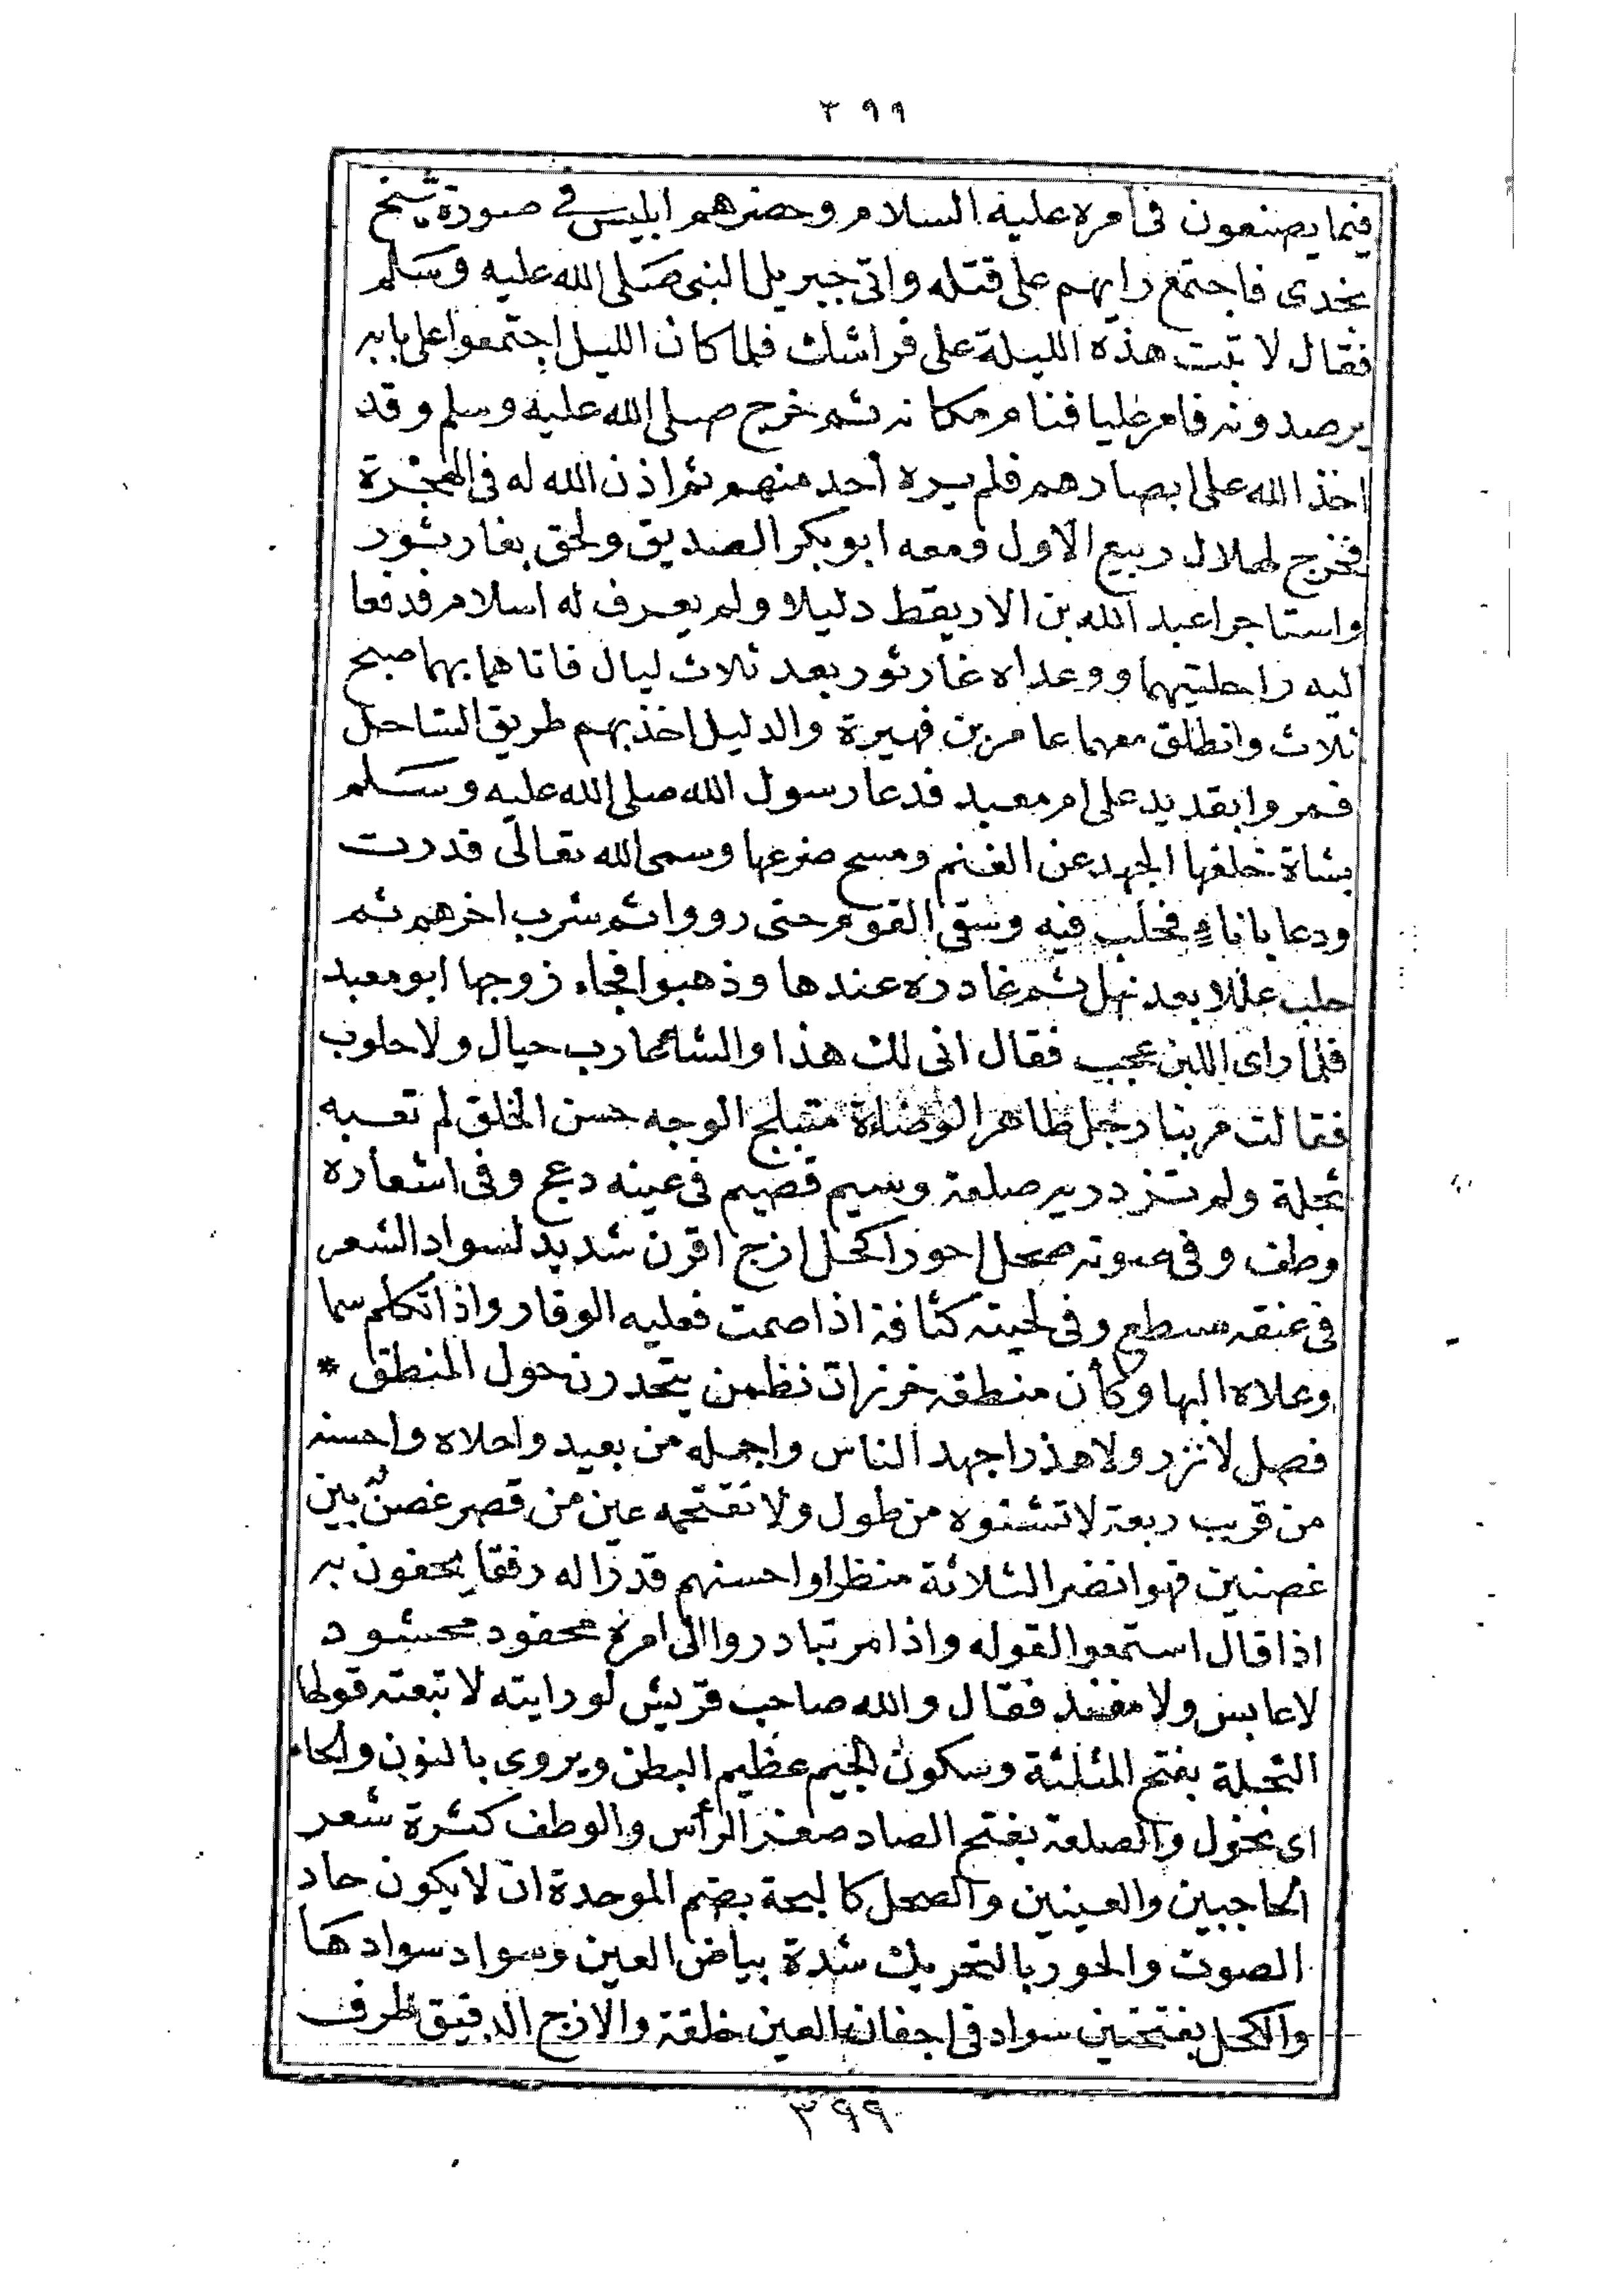 ٣٩٩
فيما يصنعون فى امره عليه السلام وحضرهم ابليس فى صورة شيخ
نجدى فاجتمع رايهم على قتله واتى جبريل النبى صلى الله عليه وسلم
فقال لا تبت هذه الليلة على فراشك فلما كان الليل اجتمعوا على بابه
يرصدونه فامر عليا فنام مكانه ثم خرج صلى الله عليه وسلم وقد
اخذ الله على ابصارهم فلم يره احد منهم ثم اذن الله له فى الهجرة
فخرج لهلال ربيع الاول ومعه ابو بكر الصديق ولحق بغار بثور
واستاجرا عبد الله بن الاريقط دليلا ولم يعرف له اسلام فدفعا
اليه راحلتيهما ووعداه غار ثور بعد ثلاث ليال فاتاهما بهما صبح
ثلاث وانطلق معهما عامر بن فهيرة والدليل اخذ بهم طريق الساحل
فمروا بقديد على ام معبد فدعا رسول الله صلى الله عليه وسلم
بشاة خلفها الجهد عن الغنم ومسح ضرعها وسمى الله تعالى فدرت
ودعا باناء فحلب فيه وسقى القوم حتى رووا ثم شرب اخرهم ثم
حلب عللا بعد نهل ثم غادره عندها وذهبوا فجاء زوجها ابو معبد
فلما راى اللبن عجب فقال انى لك هذا والشاء عازب حيال ولا حلوب
فقالت مر بنا رجل ظاهر الوضاءة متبلج الوجه حسن الخلق لم تعبه
ثجلة ولم تزدريه صلعة وسيم قصيم فى عينه دعج وفى اشعاره
وطف وفى صوته صحل احور اكحل ازج اقرن شديد لسواد الشعر
فى عنقه سطع وفى لحيته كثافة اذا صمت فعليه الوقار واذا تكلم سما
وعلاه البها وكأن منطقه خرزات نظمن يتحدرن حول المنطق *
فصل لا نزر ولا هذر اجهد الناس واجمله من بعيد واحلاه واحسنه
من قريب ربعة لا تشنوه من طول ولا تقتحمه عين من قصر غصن بين
غصنين فهو انضر الثلاثة منظرا واحسنهم قدرا له رفقا يحفون به
اذا قال استمعوا لقوله واذا امر تبادروا الى امره محفود محشود
لا عابس ولا مفند فقال والله صاحب قريش لو رايته لاتبعته قولها
الثجلة بفتح المثلثة وسكون الجيم عظيم البطن ويروى بالنون والحاء
اى نحول والصلعة بفتح الصاد صغر الرأس والوطف كثرة شعر
الحاجبين والعينين والصحل كالبحة بضم الموحدة ان لا يكون حاد
الصوت والحور بالتحريك شدة بياض العين وسواد سوادها
والكحل بفتحتين سواد فى اجفان العين خلقة والازج الدقيق طرف
٣٩٩